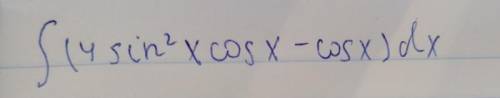 ∫(4 sin² x cos x − cos x) dx